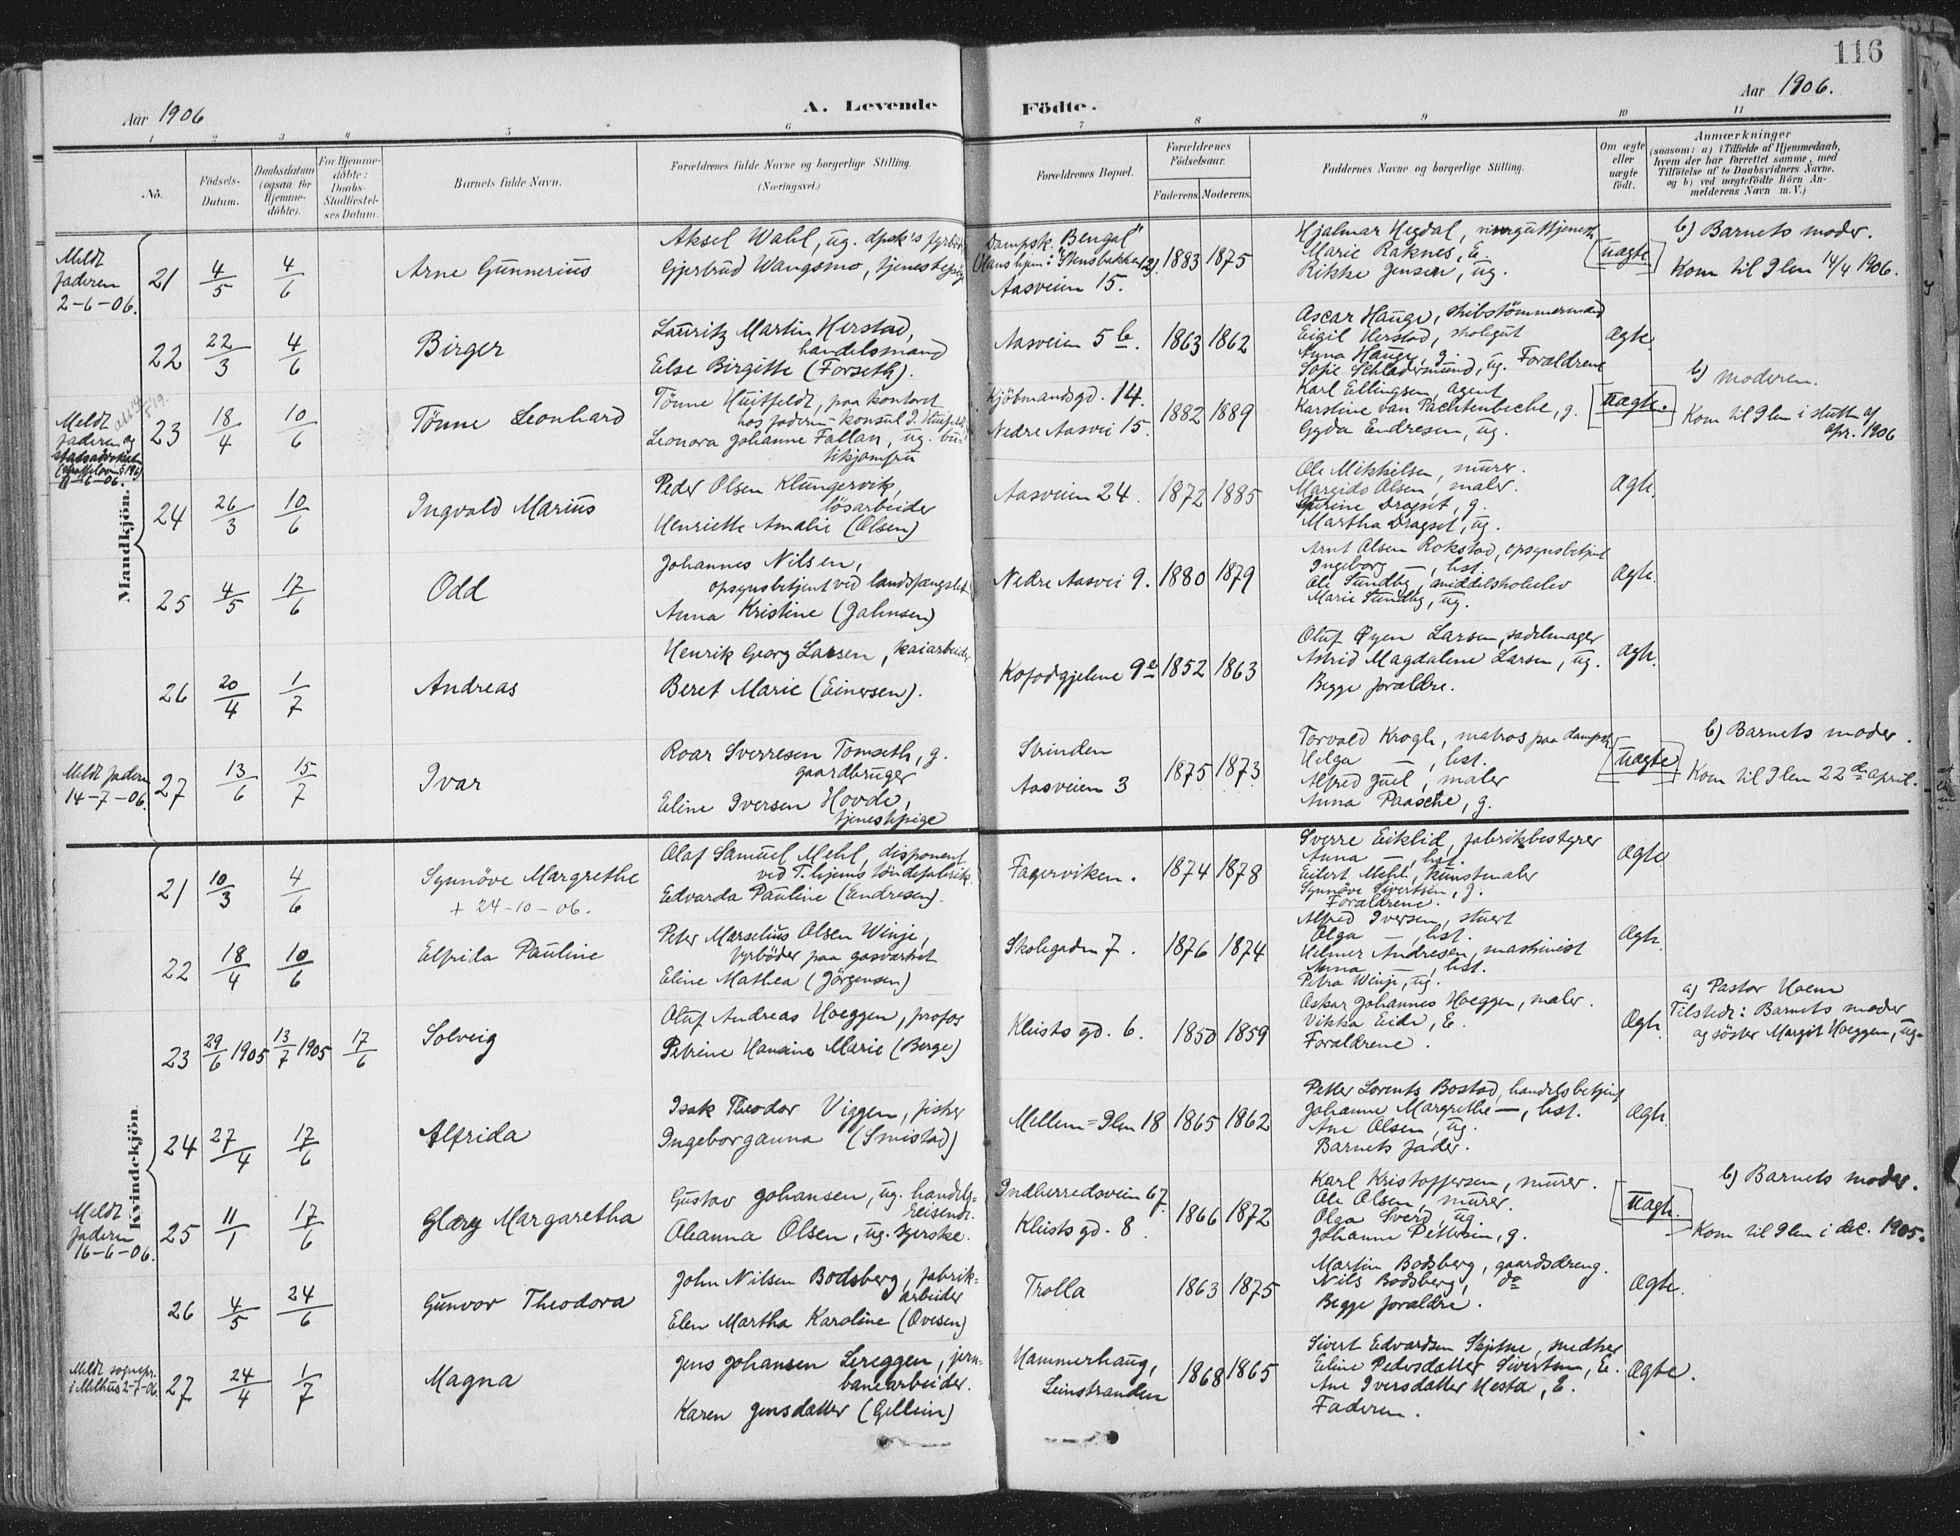 116
Aar 1906
A. Levende Födte.
Aar 1906.
1 2 3 4 5 6 7 8 9 10 11
No.
Födsels-Datum.
Daabsdatum (ogsaa for Hjemmedöbte).
For Hjemmedöbte: Daabs-Stadfæstelses Datum.
Barnets fulde Navn.
Forældrenes fulde Navne og borgerlige Stilling.
(Næringsvei.)
Forældrenes Bopæl.
Forældrenes Födselsaar.
Faderens. Moderens.
Faddernes Navne og borgerlige Stilling.
Om ægte eller uægte födt.
Anmærkninger
(saasom: a) i Tilfælde af Hjemmedaab, hvem der har forrettet samme, med Tilföielse af to Daabsvidners Navne, og b) ved uægtefödte Börn Anmelderens Navn m. V.)
Mandkjön.
Meldt faderen 2-6-06.
21 4/5 4/6 Arne Gunnerius
Aksel Wahl, ug. dpsk's fyrböder
Gjertrud Wangsmo, tjenestepige
Dampsk. "Bengal"
Aasveien 15.
1883 1875
Hjalmar Hegdal,
Marie Raknes, E.
Rikke Jensen, ug.
uægte
b) Barnets moder.
Kom til Ilen 14/4 1906.
22 22/3 4/6 Birger
Lauritz Martin Herstad,
handelsmand
Else Birgitte (Forseth).
Aasveien 5 b.
1863 1862
Ascar Hauge, skibstømmermand
Eigil Herstad, skolegut
Anna Hauge, g.
Sofie Schladermund, ug. Forældrene
ægte.
Meldt faderen og statsadvokaten 11-6-06.
23 18/4 10/6 Tönne Leonhard
Tönne Huitfeldt, paa kontoret
hos faderen - konsul
Leonora Johanne Fallan, ug. butikjomfru
Kjöbmandsgd. 14.
Nedre Aasvei 15.
1882 1889
Karl Ellingsen, agent
Karstine van Pachtenbeche, g.
Gyda Endresen, ug.
uægte.
b) Moderen.
Kom til Ilen i slutt. af apr. 1906
24 26/3 10/6 Ingvald Marius
Peder Olsen Klungervik,
lösarbeider
Henriette Amalie (Olsen)
Aasveien 24.
1872 1885
Ole Mikkelsen, murer.
Margido Olsen, maler.
Dragset, g.
Martha Dragset, ug.
ægte.
25 4/5 17/6 Odd
Johannes Nilsen,
opsynsbetjent ved landsfængslet
Anna Kristine (Jahnsen)
Nedre Aasvei 9.
1880 1879
Arnt Olsen Rokstad, opsynsbetjent
Ingeborg —, hst.
Ole Sundby, middelskoleelev
Marie Sundby, ug.
ægte.
26 20/4 1/7 Andreas
Henrik Georg Larsen, kaiarbeider
Beret Marie (Einersen).
Kofodgjelene 9 a
1852 1863
Oluf Øyen Larsen, sadelmager
Astrid Magdalene Larsen, ug.
Begge forældre.
ægte.
Meldt faderen 14-7-06.
27 13/6 15/7 Ivar
Roar Sverresen Tomseth, g.
gaardbruger
Eline Iversen Hovde,
tjenestepige
Strinden
Aasveien 3
1875 1873
Torvald Krogh, matros paa dampsk.
Helga —, hst.
Alfred Juel, maler
Anna Paasche, g.
uægte
b) Barnets moder.
Kom til Ilen 22de april.
Kvindekjön.
21 10/3 4/6 Synnöve Margrethe
+ 24-10-06.
Olaf Samuel Mehl, disponent
ved T.hjems töndefabrik.
Edvarda Pauline (Endresen).
Fagerviken.
1874 1878
Sverre Eiklid, fabrikbestyrer
Anna —, hst.
Eilert Mehl, kunstmaler
Synnöve Sivertsen, g.
Forældrene.
ægte
22 18/4 10/6 Elfrida Pauline
Peter Marselius Olsen Winje,
fyrböder paa gasværket
Eline Mathea (Jörgensen)
Skolegaden 7.
1876 1874
Alfred Iversen, stuert
Olga —, hst.
Helmer Andresen, maskinist
Anna —, hst.
Petra Winje, ug.
ægte.
23 29/6 1905 13/7 1905 17/6 Solveig
Oluf Andreas Hoeggen, profos
Petrine Hansine Marie (Berge)
Kleists gd. 6.
1850 1859
Oskar Johannes Hoeggen, maler.
Vikka Eide, E.
Forældrene.
ægte.
a) Pastor Hoem
Tilstede: Barnets moder
og söster Margit Hoeggen, ug.
24 27/4 17/6 Alfrida
Isak Theodor Viggen, fisker
Ingeborganna (Smistad)
Mellem-Ilen 18
1865 1862
Petter Lorents Bostad, handelsbetjent
Johanne Margrethe —, hst.
Ane Olsen, ug.
Barnets fader.
ægte.
Meldt faderen 16-6-06.
25 11/1 17/6 Glæry Margaretha
Gustav Johansen, ug. handelsreisende.
Oleanna Olsen, ug. syerske.
Indherredsveien 67.
Kleists gd. 8
1866 1872
Karl Kristoffersen, murer.
Ole Olsen, murer.
Olga Sverd, ug.
Johanne Pettersen, g.
uægte.
b) Barnets moder.
Kom til Ilen i dec. 1905.
26 4/5 24/6 Gunvor Theodora
John Nilsen Bodsberg, fabrikarbeider
Elen Martha Karoline (Ovesen)
Trolla
1863 1875
Martin Bodsberg, gaardsdreng.
Nils Bodsberg, do
Begge forældre.
ægte.
Meldt sognepr. i Melhus 2-7-06.
27 24/4 1/7 Magna
Jens Johansen Lereggen, jernbanearbeider.
Karen Jensdatter (Gellein)
Hammerhaug,
Leinstranden
1868 1865
Sivert Edvardsen Skjetne, snedker
Eline Pedersdatter Sivertsen, E.
Ane Iversdatter Hesta, E.
Faderen.
ægte.